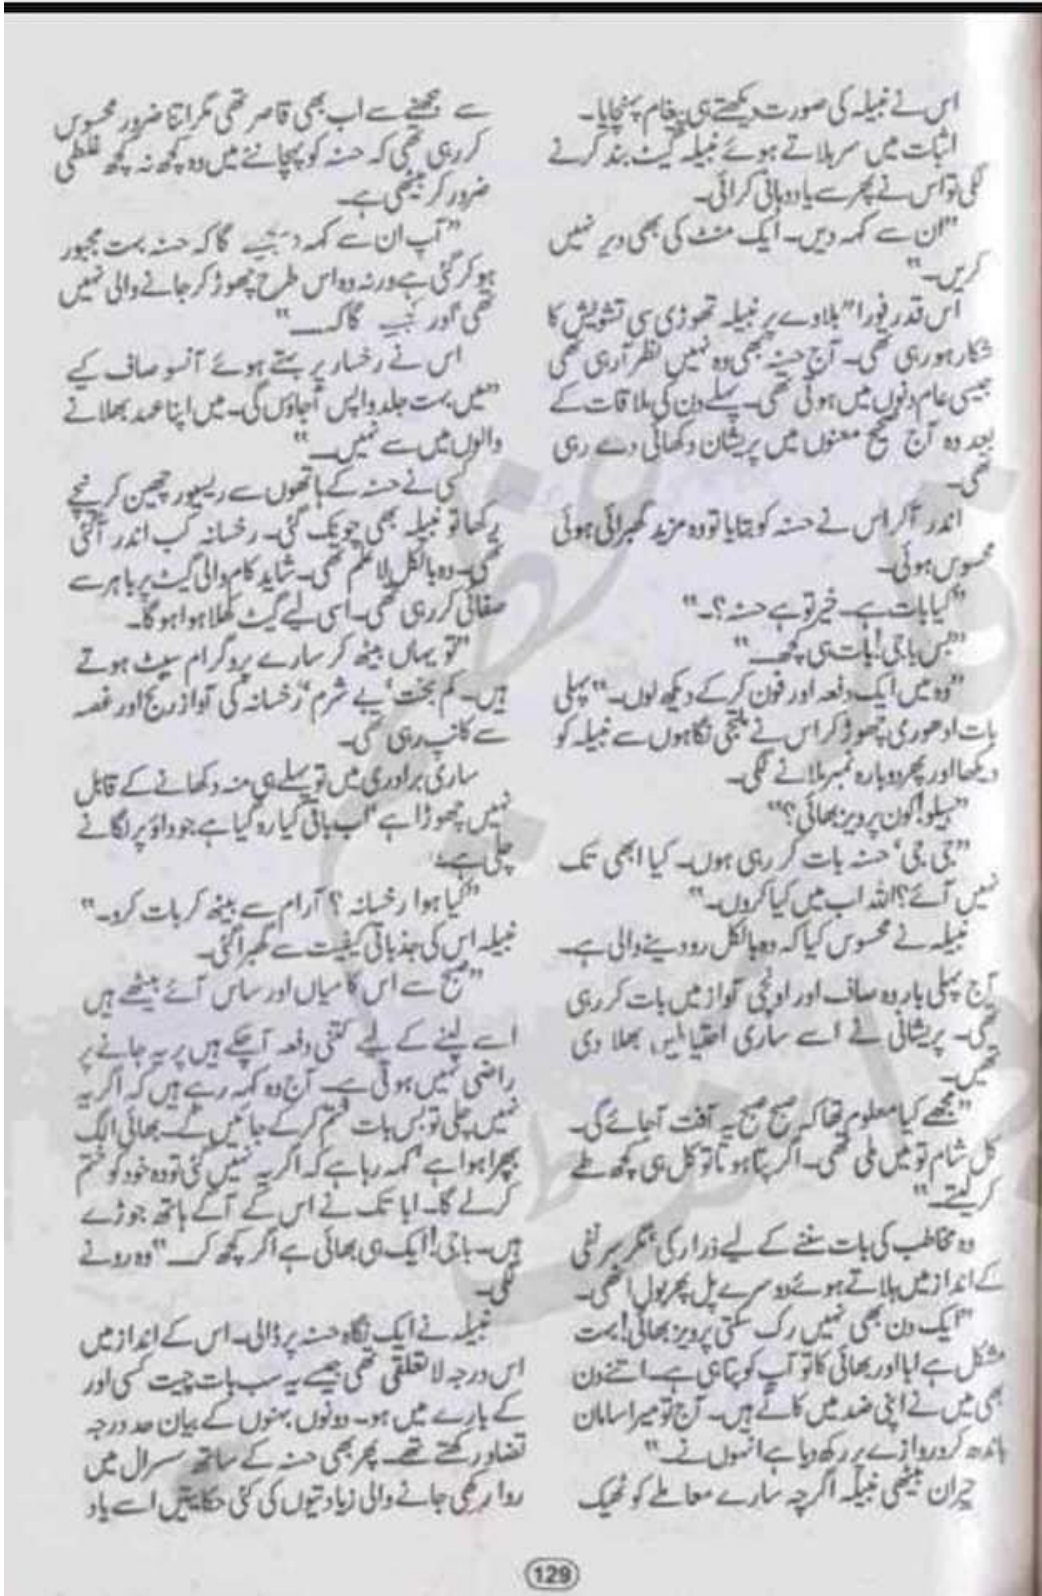 اس نے نبیلہ کی صورت دیکھتے ہی پیغام پہنچایا۔
اثبات میں سر ہلاتے ہوئے نبیلہ گیٹ بند کرنے
لگی تو اس نے پھر سے یاد دہانی کرائی۔
”ان سے کہہ دیں۔ ایک منٹ کی بھی دیر نہیں
کریں۔“
اس قدر فورا” بلاوے پر نبیلہ تھوڑی سی تشویش کا
شکار ہو رہی تھی۔ آج حسنہ بھی وہ نہیں نظر آ رہی تھی
جیسی عام دنوں میں ہوتی تھی۔ پہلے دن کی ملاقات کے
بعد وہ آج صحیح معنوں میں پریشان دکھائی دے رہی
تھی۔
اندر آکر اس نے حسنہ کو بتایا تو وہ مزید گھبرائی ہوئی
محسوس ہوئی۔
”کیا بات ہے۔ خیر تو ہے حسنہ؟۔“
”بس باجی! بات ہی کچھ۔“
”وہ میں ایک دفعہ اور فون کرکے دیکھ لوں۔“ پہلی
بات ادھوری چھوڑ کر اس نے ملتجی نگاہوں سے نبیلہ کو
دیکھا اور پھر دوبارہ نمبر ملانے لگی۔
”ہیلو! کون پرویز بھائی؟“
”جی جی‘ حسنہ بات کر رہی ہوں۔ کیا ابھی تک
نہیں آئے؟ اللہ اب میں کیا کروں۔“
نبیلہ نے محسوس کیا کہ وہ بالکل رو دینے والی ہے۔
آج پہلی بار وہ صاف اور اونچی آواز میں بات کر رہی
تھی۔ پریشانی نے اسے ساری احتیاطیں بھلا دی
تھیں۔
”مجھے کیا معلوم تھا کہ صبح صبح یہ آفت آجائے گی۔
کل شام تو میں ملی تھی۔ اگر پتا ہوتا تو کل ہی کچھ طے
کر لیتے۔“
وہ مخاطب کی بات سننے کے لیے ذرا رکی‘ مگر سر نفی
کے انداز میں ہلاتے ہوئے دوسرے پل پھر بول اٹھی۔
”ایک دن بھی نہیں رک سکتی پرویز بھائی! بہت
مشکل ہے ابا اور بھائی کا تو آپ کو پتا ہی ہے۔ اتنے دن
بھی میں نے اپنی ضد میں کاٹے ہیں۔ آج تو میرا سامان
باندھ کر دروازے پر رکھ دیا ہے انہوں نے۔“
حیران بیٹھی نبیلہ اگرچہ سارے معاملے کو ٹھیک
سے سمجھنے سے اب بھی قاصر تھی مگر اتنا ضرور محسوس
کر رہی تھی کہ حسنہ کو پہچاننے میں وہ کچھ نہ کچھ غلطی
ضرور کر بیٹھی ہے۔
”آپ ان سے کہہ دیجئیے گا کہ حسنہ بہت مجبور
ہو کر گئی ہے ورنہ وہ اس طرح چھوڑ کر جانے والی نہیں
تھی اور گا کہ۔“
اس نے رخسار پر بہتے ہوئے آنسو صاف کیے
”میں بہت جلد واپس آجاؤں گی۔ میں اپنا عہد بھلانے
والوں میں سے نہیں۔“
کسی نے حسنہ کے ہاتھوں سے ریسیور چھین کر نیچے
رکھا تو نبیلہ بھی چونک گئی۔ رخسانہ کب اندر آگئی
تھی۔ وہ بالکل لاعلم تھی۔ شاید کام والی گیٹ پر باہر سے
صفائی کر رہی تھی۔ اسی لیے گیٹ کھلا ہوا ہو گا۔
”تو یہاں بیٹھ کر سارے پروگرام سیٹ ہوتے
ہیں۔ کم بخت‘ بے شرم‘ رخسانہ کی آواز رنج اور غصہ
سے کانپ رہی تھی۔
ساری برادری میں تو پہلے ہی منہ دکھانے کے قابل
نہیں چھوڑا ہے‘ اب باقی کیا رہ گیا ہے جو داؤ پر لگانے
چلی ہے۔
”کیا ہوا رخسانہ؟ آرام سے بیٹھ کر بات کرو۔“
نبیلہ اس کی جذباتی کیفیت سے گھبرا گئی۔
”صبح سے اس کا میاں اور ساس آئے بیٹھے ہیں
اسے لینے کے لیے کتنی دفعہ آچکے ہیں پر یہ جانے پر
راضی نہیں ہوتی ہے۔ آج وہ کہہ رہے ہیں کہ اگر یہ
نہیں چلی تو بس بات ختم کرکے جائیں گے۔ بھائی الگ
بپھرا ہوا ہے‘ کہہ رہا ہے کہ اگر یہ نہیں گئی تو وہ خود کو ختم
کرلے گا۔ ابا تک نے اس کے آگے ہاتھ جوڑے
ہیں۔ باجی! ایک ہی بھائی ہے اگر کچھ کر۔“ وہ رونے
لگی۔
نبیلہ نے ایک نگاہ حسنہ پر ڈالی۔ اس کے انداز میں
اس درجہ لاتعلقی تھی جیسے یہ سب بات چیت کسی اور
کے بارے میں ہو۔ دونوں بہنوں کے بیان حد درجہ
تضاد رکھتے تھے۔ پھر بھی حسنہ کے ساتھ سسرال میں
روا رکھی جانے والی زیادتیوں کی کئی حکایتیں اسے یاد
129